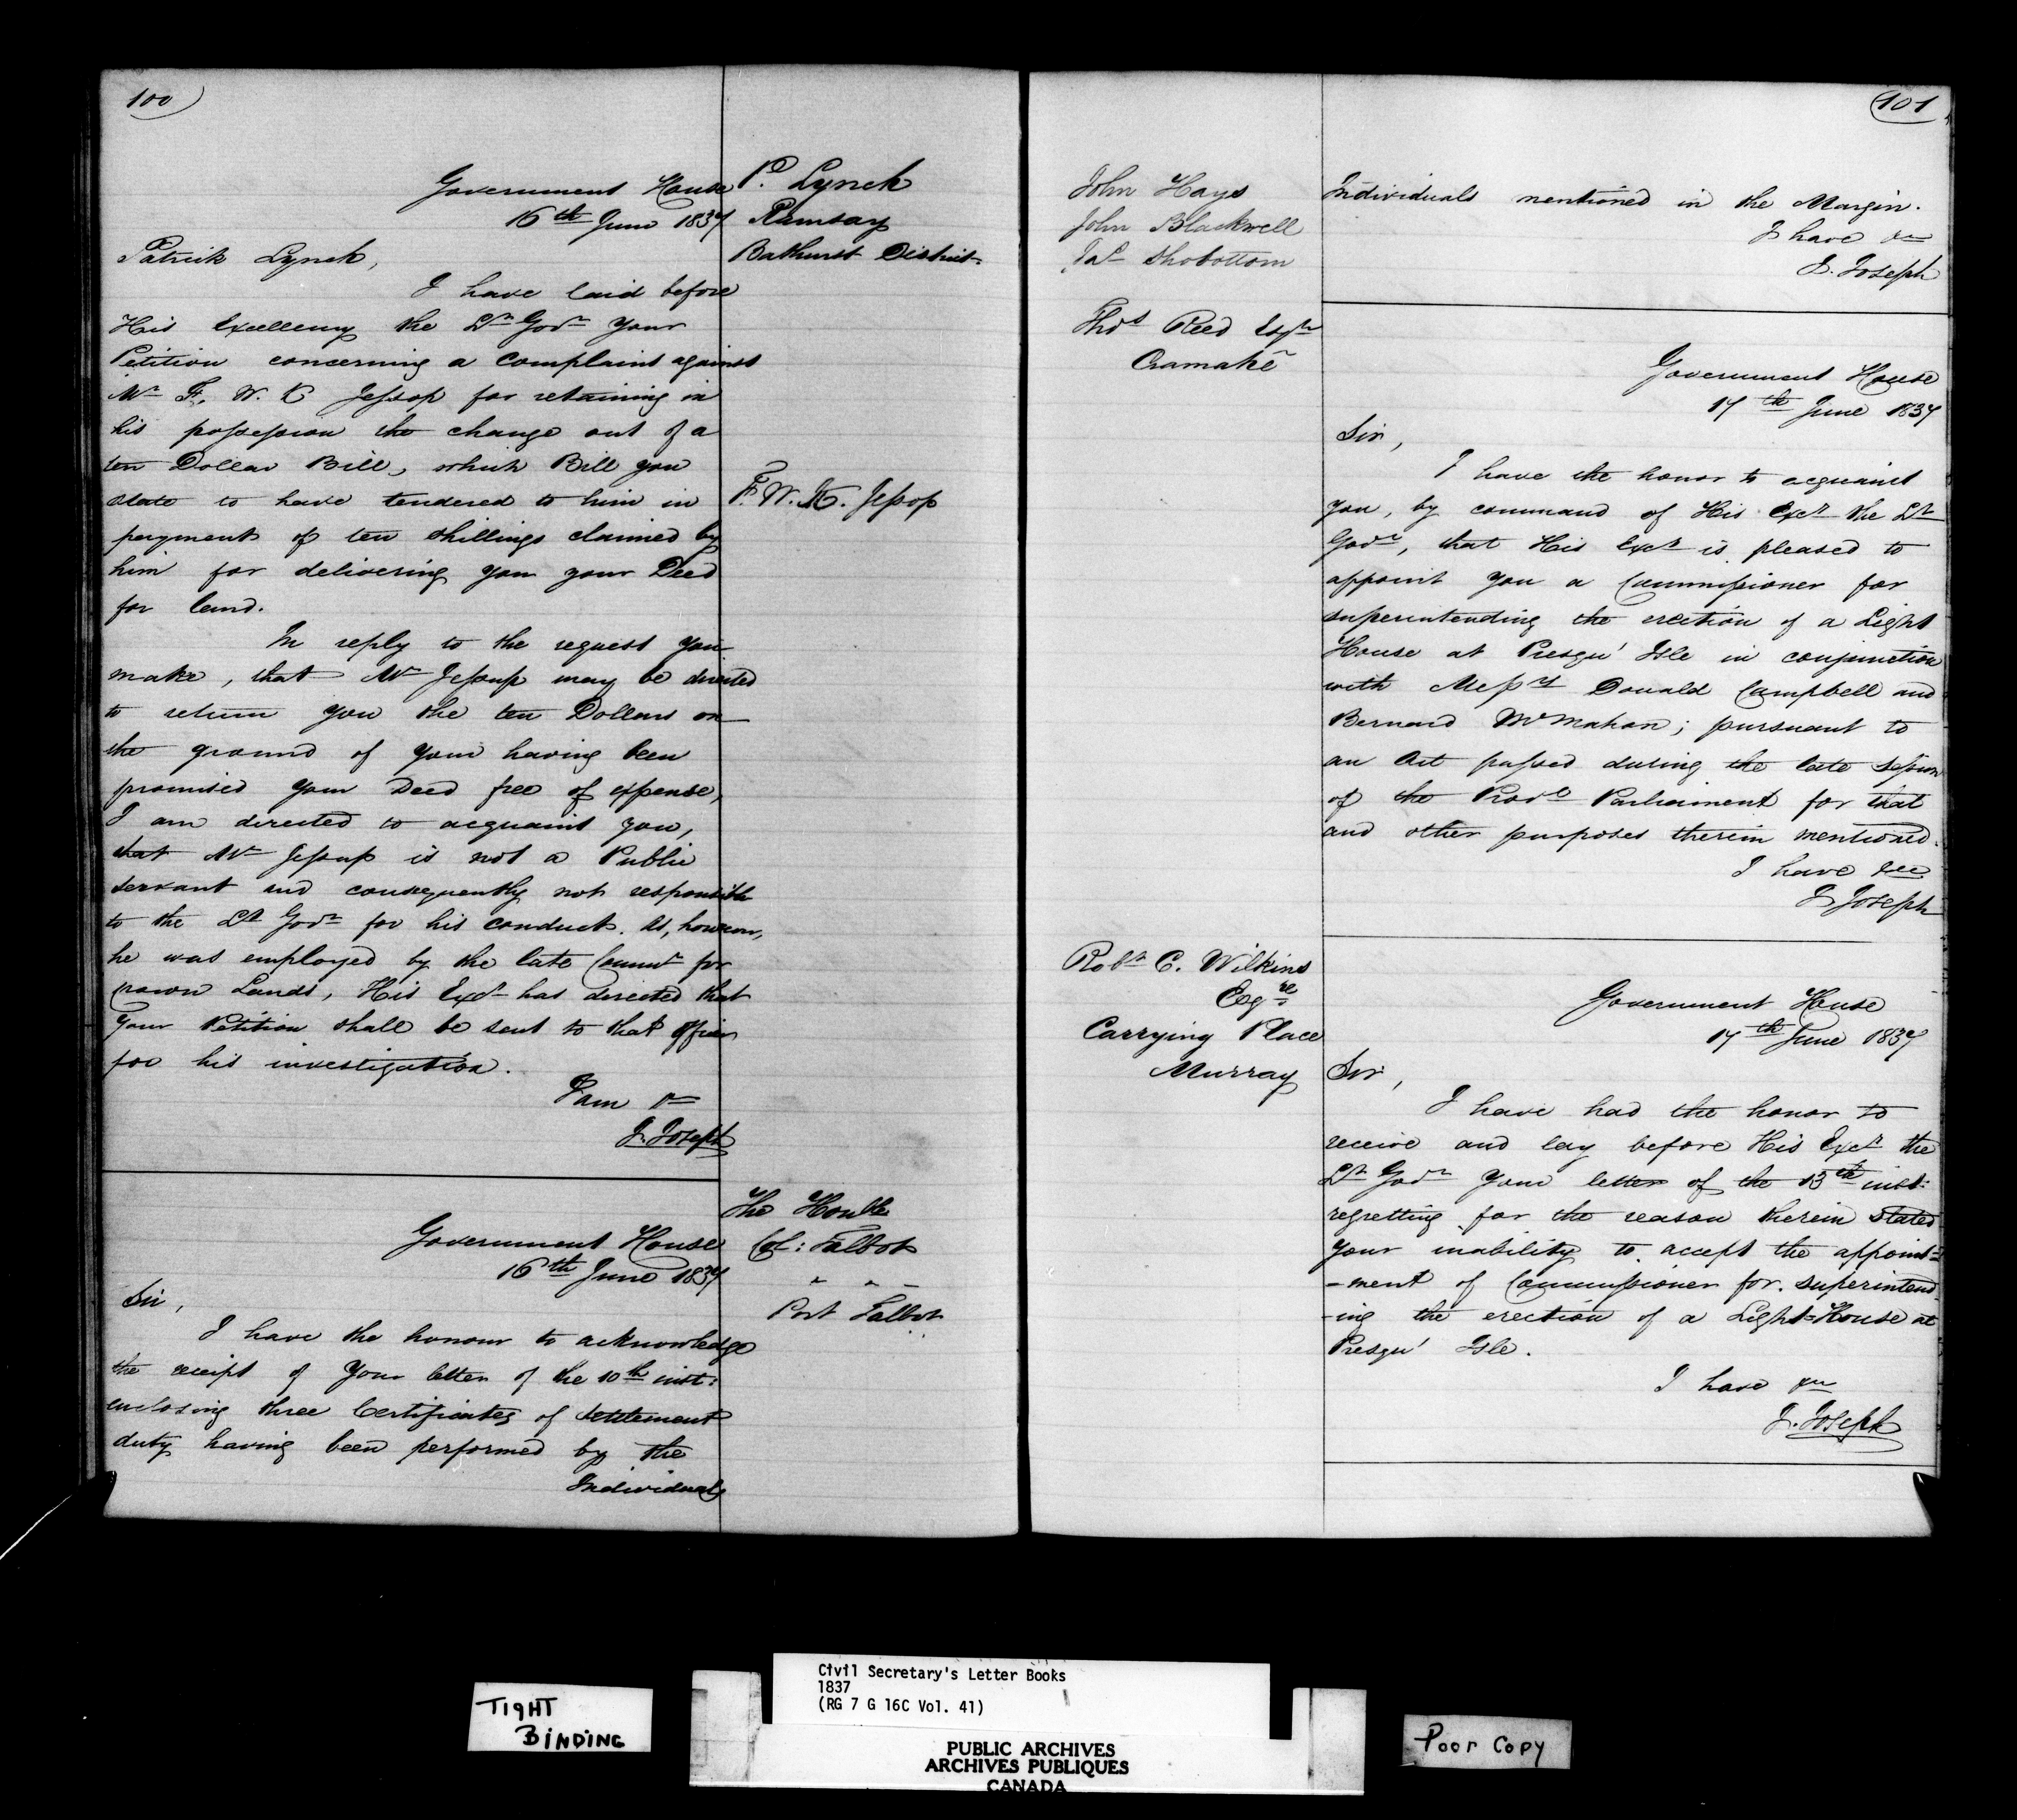 100
Government House
16th June 1837
P. Lynch
Ramsay
Bathurst District
Patrick Lynch,
I have laid before
His Excellency the Lt Govr Your
Petition concerning a Complaint against
Mr F. W. K Jessop for retaining in
his possession the change out of a
ten Dollar Bill, which Bill you
state to have tendered to him in
payment of ten shillings claimed by
him for delivering you your Deed
for land.
F. W. K. Jessop
In reply to the request you
make, that Mr Jessup may be directed
to return you the ten Dollars on
the ground of your having been
promised your Deed free of expense,
I am directed to acquaint you,
that Mr Jessup is not a Public
servant and consequently not responsible
to the Lt Govr for his conduct. As, however,
he was employed by the late Commr for
Crown Lands, His Excy has directed that
Your Petition shall be sent to that officer
for his investigation.
I am &c
J. Joseph
Government House
16th June 1837
The Honble
Col: Talbot
" " "
Port Talbot
Sir,
I have the honour to acknowledge
the receipt of Your letter of the 10th inst:
enclosing three Certificates of settlement
duty having been performed by the
Individuals
101
John Hays
John Blackwell
Jas Shobottom
Individuals mentioned in the Margin.
I have &c
J. Joseph
Thos Reed Esqr
Cramahe
Government House
17th June 1837
Sir,
I have the honor to acquaint
you, by command of His Excy the Lt
Govr, that His Excy is pleased to
appoint you a Commissioner for
superintending the erection of a Light
House at Presqu' Isle in conjunction
with Messrs Donald Campbell and
Bernard McMahon; pursuant to
an Act passed during the late Session
of the Provl Parliament for that
and other purposes therein mentioned.
I have &c
J Joseph
Robt C. Wilkins
Esqre
Carrying Place
Murray
Government House
17th June 1837
Sir,
I have had the honor to
receive and lay before His Excy the
Lt Govr Your letter of the 13th inst:
regretting for the reason therein stated
Your inability to accept the appoint=
-ment of Commissioner for superintend
-ing the erection of a Light=House at
Presqu' Isle.
I have &c
J. Joseph
TIGHT
BINDING
Civil Secretary's Letter Books
1837
(RG 7 G 16C Vol. 41)
PUBLIC ARCHIVES
ARCHIVES PUBLIQUES
CANADA
Poor Copy